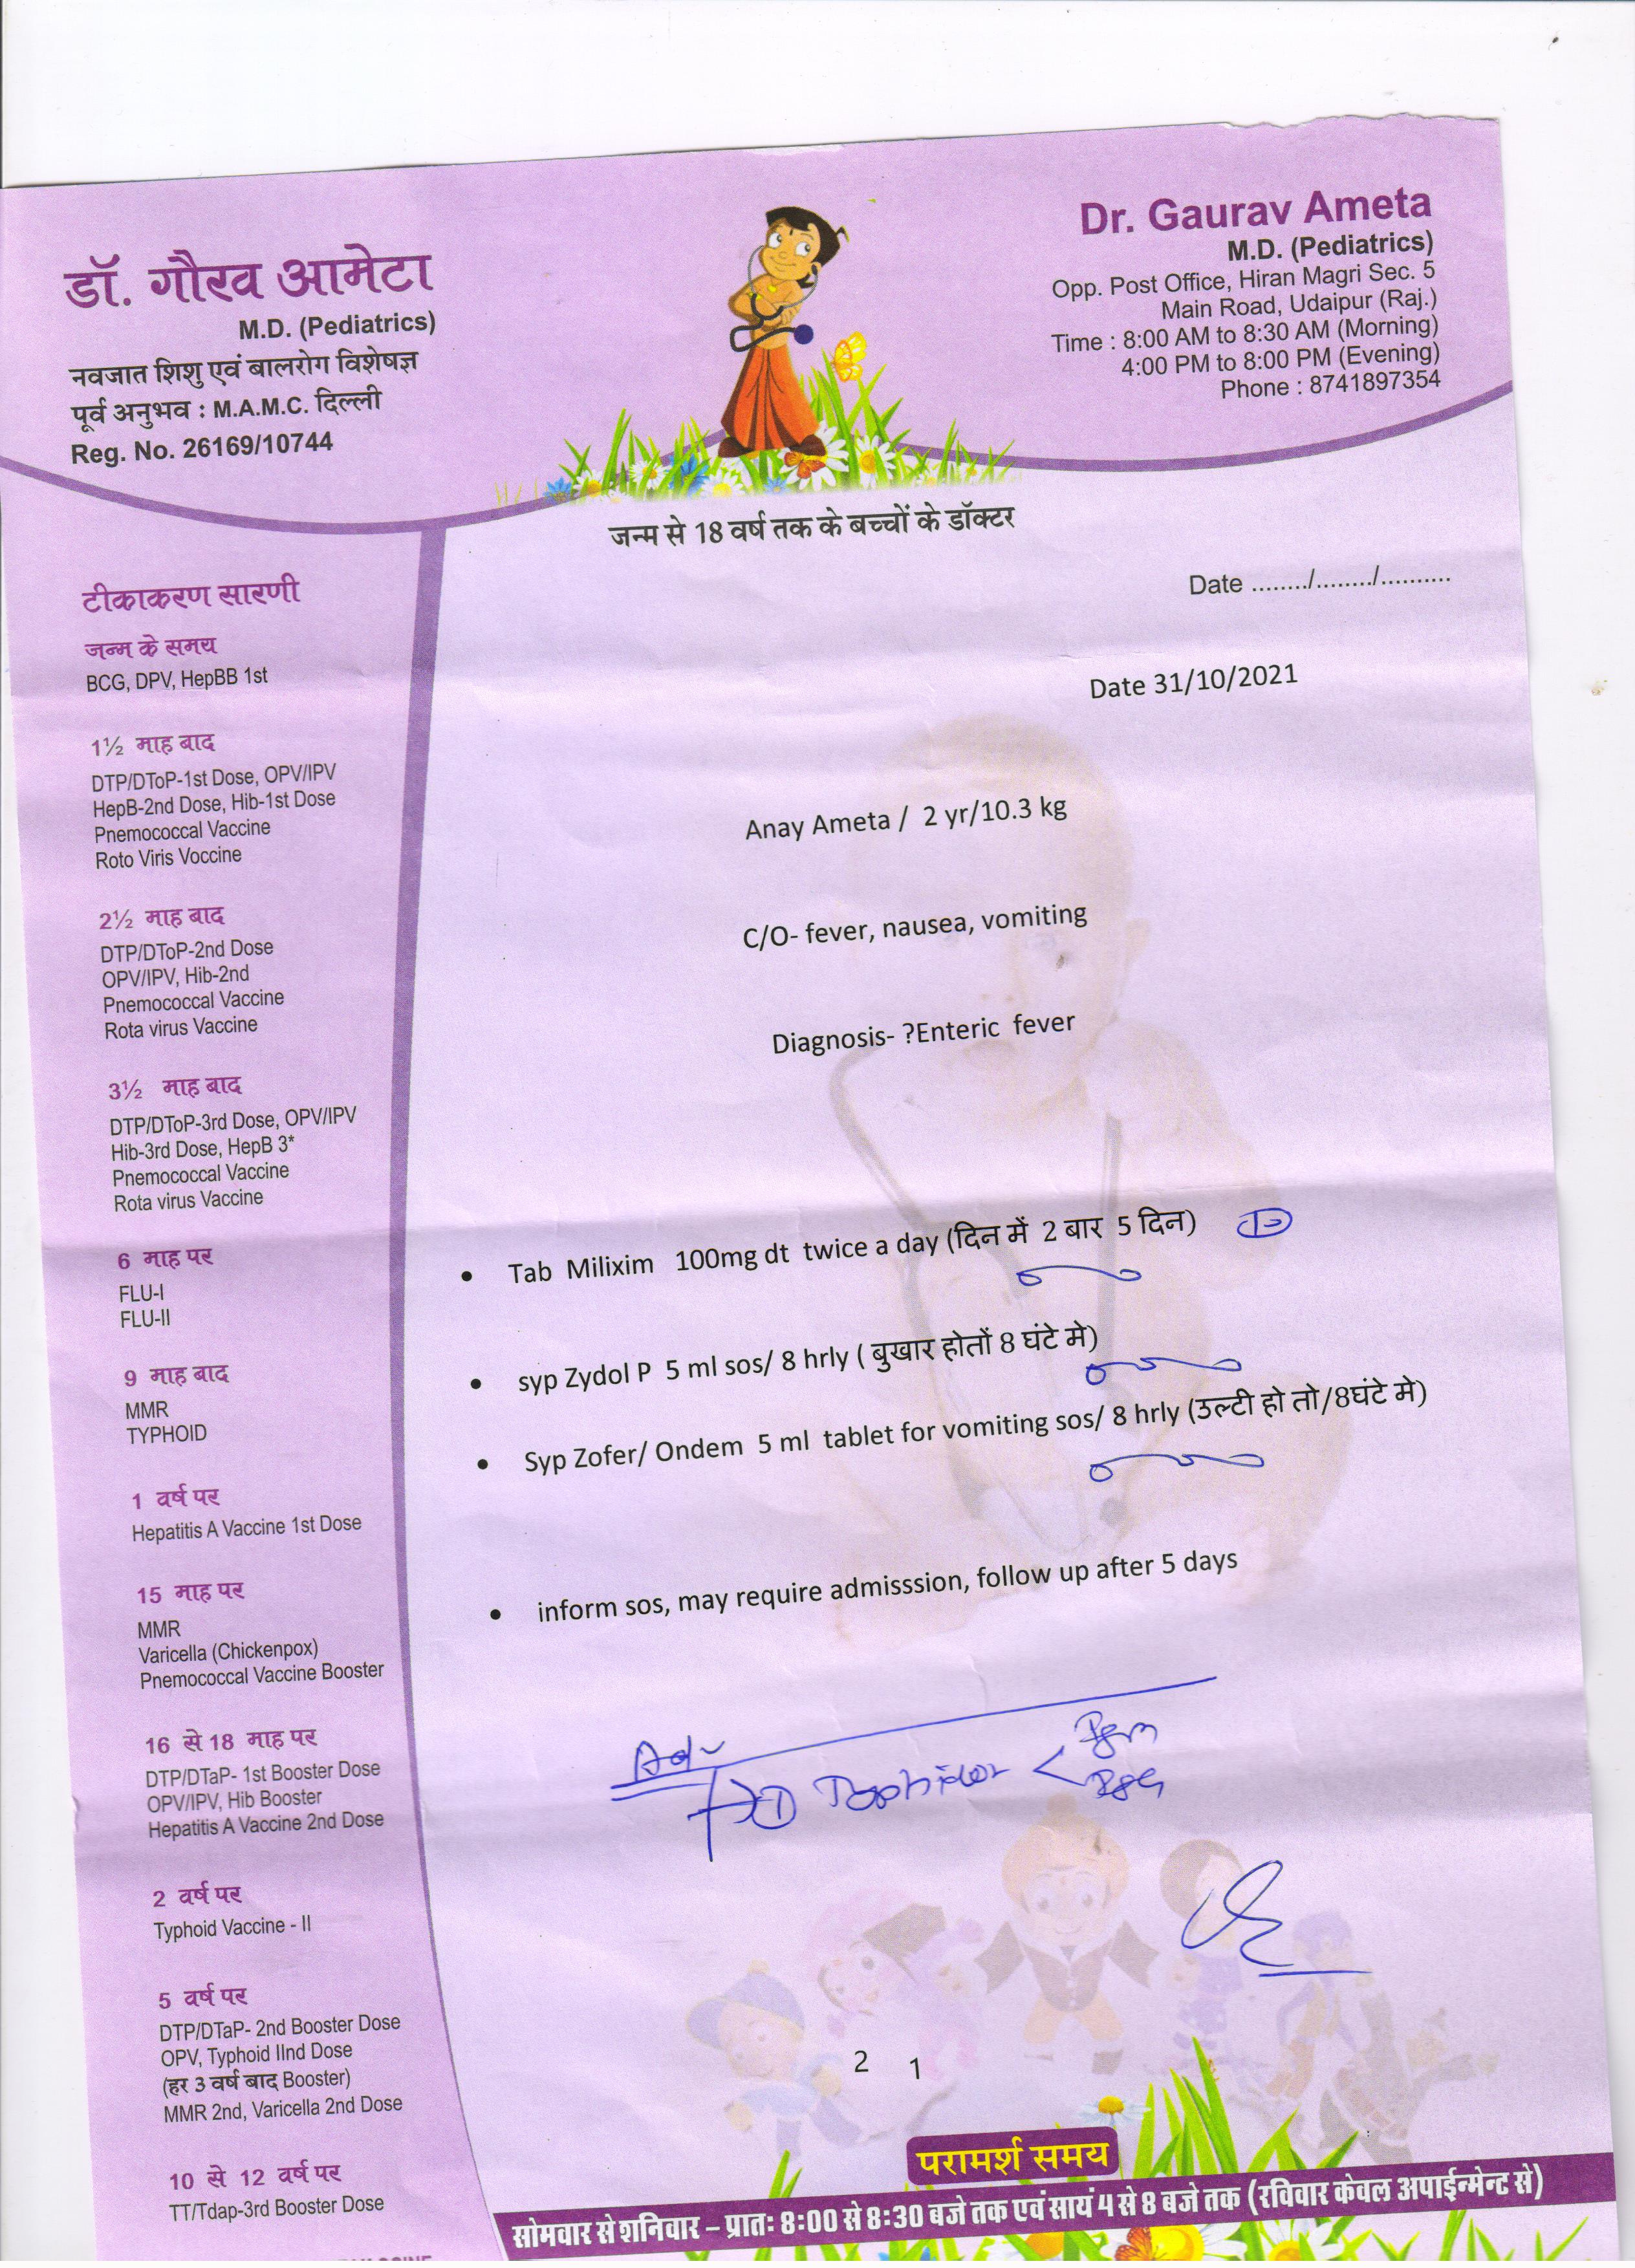 डॉ. गौरव आमेटा
M.D. (Pediatrics)
नवजात शिशु एवं बालरोग विशेषज्ञ
पूर्व अनुभव : M.A.M.C. दिल्ली
Reg. No. 26169/10744
Dr. Gaurav Ameta
M.D. (Pediatrics)
Opp. Post Office, Hiran Magri Sec. 5
Main Road, Udaipur (Raj.)
Time : 8:00 AM to 8:30 AM (Morning)
4:00 PM to 8:00 PM (Evening)
Phone : 8741897354
जन्म से 18 वर्ष तक के बच्चों के डॉक्टर
टीकाकरण सारणी
जन्म के समय
BCG, DPV, HepBB 1st
1½ माह बाद
DTP/DToP-1st Dose, OPV/IPV
HepB-2nd Dose, Hib-1st Dose
Pnemococcal Vaccine
Roto Viris Voccine
2½ माह बाद
DTP/DToP-2nd Dose
OPV/IPV, Hib-2nd
Pnemococcal Vaccine
Rota virus Vaccine
3½ माह बाद
DTP/DToP-3rd Dose, OPV/IPV
Hib-3rd Dose, HepB 3*
Pnemococcal Vaccine
Rota virus Vaccine
6 माह पर
FLU-I
FLU-II
9 माह बाद
MMR
TYPHOID
1 वर्ष पर
Hepatitis A Vaccine 1st Dose
15 माह पर
MMR
Varicella (Chickenpox)
Pnemococcal Vaccine Booster
16 से 18 माह पर
DTP/DTaP- 1st Booster Dose
OPV/IPV, Hib Booster
Hepatitis A Vaccine 2nd Dose
2 वर्ष पर
Typhoid Vaccine - II
5 वर्ष पर
DTP/DTaP- 2nd Booster Dose
OPV, Typhoid IInd Dose
(हर 3 वर्ष बाद Booster)
MMR 2nd, Varicella 2nd Dose
10 से 12 वर्ष पर
TT/Tdap-3rd Booster Dose
Date ......../......../..........
Date 31/10/2021
Anay Ameta / 2 yr/10.3 kg
C/O- fever, nausea, vomiting
Diagnosis- ?Enteric fever
• Tab Milixim 100mg dt twice a day (दिन में 2 बार 5 दिन)
• syp Zydol P 5 ml sos/ 8 hrly ( बुखार होतों 8 घंटे मे)
• Syp Zofer/ Ondem 5 ml tablet for vomiting sos/ 8 hrly (उल्टी हो तो/8घंटे मे)
• inform sos, may require admisssion, follow up after 5 days
Adv
2 1
परामर्श समय
सोमवार से शनिवार – प्रातः 8:00 से 8:30 बजे तक एवं सायं 4 से 8 बजे तक (रविवार केवल अपाईन्मेन्ट से)